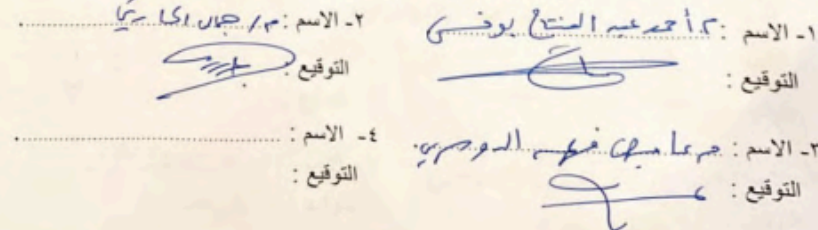 ١- الاسم : م. أحمد عبد الفتاح بوفسي
التوقيع :
٢- الاسم : م/ جمال
التوقيع :
٣- الاسم : م فهد الدوسري
التوقيع :
٤- الاسم :
التوقيع :